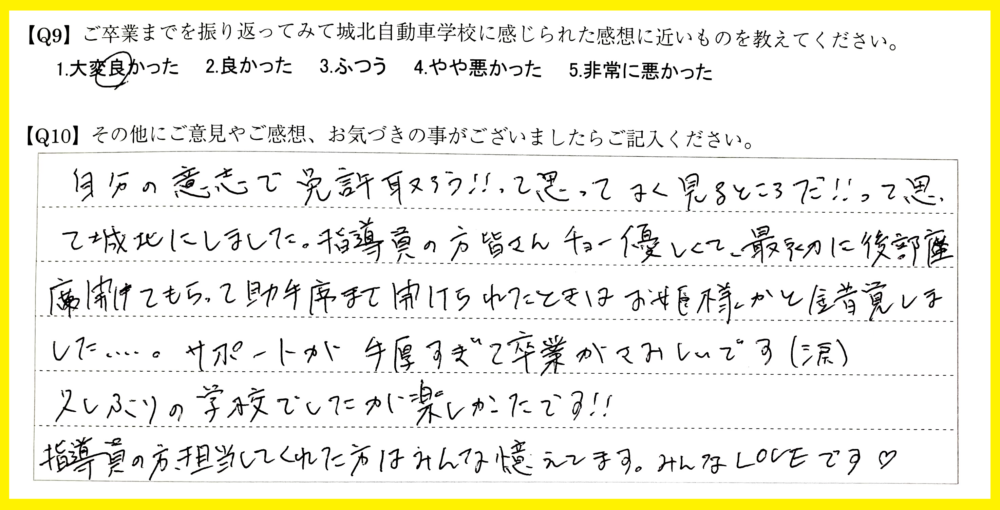 【Q9】ご卒業までを振り返ってみて城北自動車学校に感じられた感想に近いものを教えてください。
1.大変良かった 2.良かった 3.ふつう 4.やや悪かった 5.非常に悪かった
【Q10】その他にご意見やご感想、お気づきの事がございましたらご記入ください。
自分の意志で免許取ろう!!って思ってよく見るところだ!!って思っ
て城北にしました。指導員の方皆さんチョー優しくて、最初に後部座
席開けてもらって助手席まで開けられたときはお姫様かと錯覚しま
した....。サポートが手厚すぎて卒業がさみしいです(涙)
久しぶりの学校でしたが楽しかたです!!
指導員の方、担当してくれた方はみんな憶えてます。みんなLOVEです♡